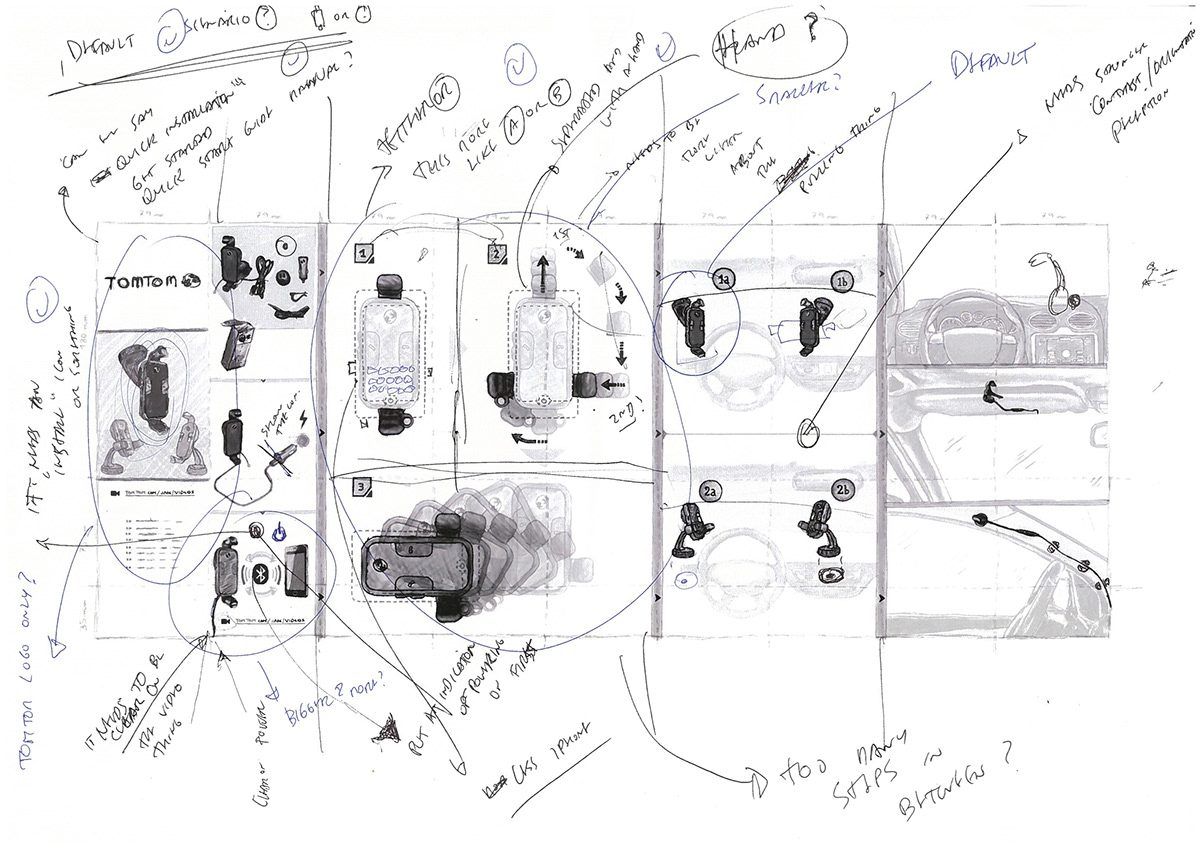 DEFAULT SCENARIO? OR
CAN WE SAY
QUICK INSTALLATION
GET STARTED
QUICK START GUIDE MANUAL?
EITHER OR
THIS MORE
LIKE A OR B
WITH A HAND
HAND?
SMALLER?
DEFAULT
NEEDS TO BE
MORE
ABOUT
THE
PULLING THING
NEEDS STRONGER
CONTRAST/
29
29
29
29
29
TOMTOM
1
2
1ST
2ND!
1a
1b
3
2a
2b
TOMTOM.COM/JAN/VIDEOS
TOMTOM.COM/JAN/VIDEOS
IT NEEDS AN
"INSTALL" ICON
OR SOMETHING
TOMTOM LOGO ONLY?
IT NEEDS TO BE
CLEAR ON
THE VIDEO
THING
POWER
BIGGER & MORE?
PUT AN INDICATION
OF POWERING
ON FIRST
LESS IPHONE
TOO MANY
STEPS IN
BETWEEN?